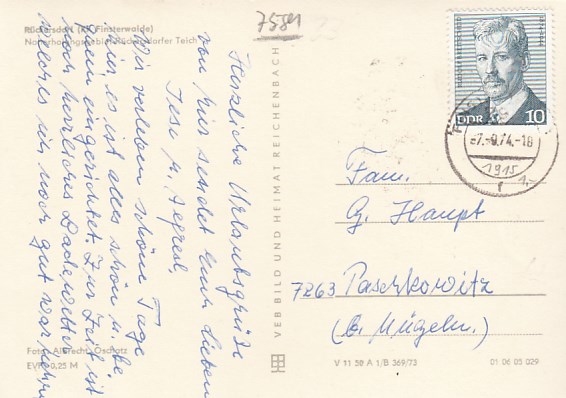 7581
Rückersdorf (Kr. Finsterwalde)
Naherholungsgebiet Rückersdorfer Teich
Herzliche Urlaubsgrüße
von hier sendet Euch Lieben
Wir verleben schöne Tage
hier, es ist alles schön u.
eingerichtet. Zur Zeit ist
noch herrliches Badewetter
Foto: Albrecht, Oschatz
EVP 0,25 M
VEB BILD UND HEIMAT REICHENBACH
DDR 10
-7.-9.74.-18
7975
Fam.
G. Haupt
7263 Paschkowitz
(b. Mügeln.)
V 11 50 A 1/B 369/73
01 06 05 029